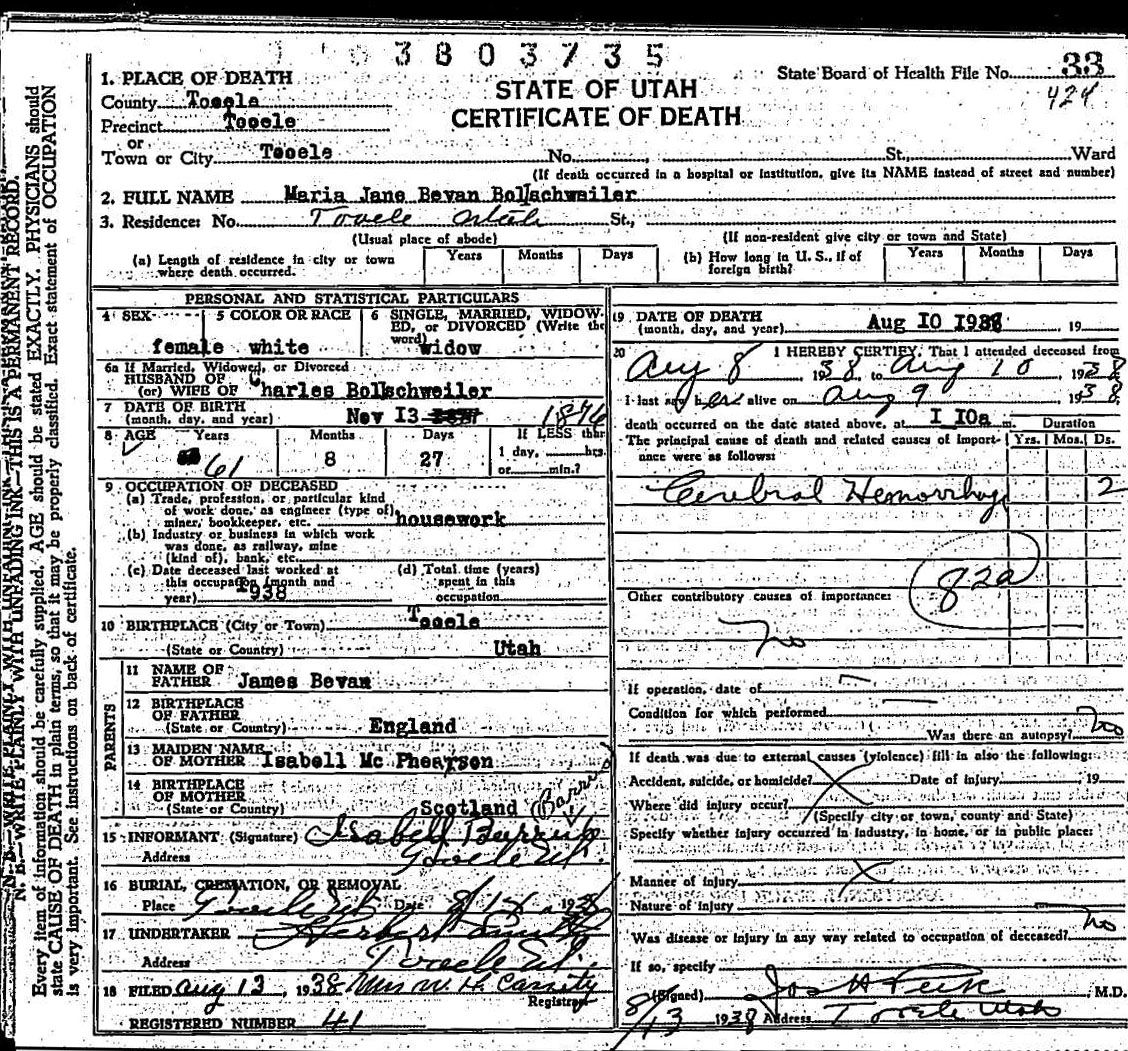 3803735
State Board of Health File No. 33
424
STATE OF UTAH
CERTIFICATE OF DEATH
1. PLACE OF DEATH
County Tooele
Precinct Tooele
or
Town or City Tooele No. St., Ward
(If death occurred in a hospital or institution, give its NAME instead of street and number)
2. FULL NAME Maria Jane Bevan Bollschweiler
3. Residence: No. Tooele Utah St.,
(Usual place of abode) (If non-resident give city or town and State)
(a) Length of residence in city or town where death occurred. Years Months Days
(b) How long in U. S., if of foreign birth? Years Months Days
PERSONAL AND STATISTICAL PARTICULARS
4 SEX female
5 COLOR OR RACE white
6 SINGLE, MARRIED, WIDOWED, or DIVORCED (Write the word) widow
6a If Married, Widowed, or Divorced
HUSBAND OF
(or) WIFE OF Charles Bollschweiler
7 DATE OF BIRTH
(month, day, and year) Nov I3 1876
8 AGE Years Months Days If LESS than
61 8 27 1 day, hrs.
or min.?
9 OCCUPATION OF DECEASED
(a) Trade, profession, or particular kind
of work done, as engineer (type of)
miner, bookkeeper, etc. housework
(b) Industry or business in which work
was done, as railway, mine
(kind of), bank, etc.
(c) Date deceased last worked at
this occupation (month and
year) I938
(d) Total time (years)
spent in this
occupation
10 BIRTHPLACE (City or Town) Tooele
(State or Country) Utah
PARENTS
11 NAME OF
FATHER James Bevan
12 BIRTHPLACE
OF FATHER
(State or Country) England
13 MAIDEN NAME
OF MOTHER Isabell Mc Phearson
14 BIRTHPLACE
OF MOTHER
(State or Country) Scotland
15 INFORMANT (Signature) Isabell
Address Tooele Ut.
16 BURIAL, CREMATION, OR REMOVAL
Place Tooele Ut Date 1938
17 UNDERTAKER Herbert
Address Tooele Ut.
18 FILED Aug 13, 1938 Mrs W. H. Cassity
Registrar
REGISTERED NUMBER 41
19 DATE OF DEATH
(month, day, and year) Aug I0 I938 19
20 I HEREBY CERTIFY, That I attended deceased from
Aug 8, 1938, to Aug 10, 1938
I last saw her alive on Aug 9 1938,
death occurred on the date stated above, at I I0a m. Duration
The principal cause of death and related causes of importance were as follows: Yrs. Mos. Ds.
Cerebral Hemorrhage 2
82a
Other contributory causes of importance:
no
If operation, date of
Condition for which performed
Was there an autopsy? no
If death was due to external causes (violence) fill in also the following:
Accident, suicide, or homicide? Date of injury 19
Where did injury occur?
(Specify city or town, county and State)
Specify whether injury occurred in industry, in home, or in public place:
Manner of injury
Nature of injury
Was disease or injury in any way related to occupation of deceased? no
If so, specify
(Signed) Jos H Peck, M.D.
8/13 1938 Address Tooele Utah
N. B.—WRITE PLAINLY WITH UNFADING INK—THIS IS A PERMANENT RECORD.
Every item of information should be carefully supplied. AGE should be stated EXACTLY. PHYSICIANS should
state CAUSE OF DEATH in plain terms, so that it may be properly classified. Exact statement of OCCUPATION
is very important. See instructions on back of certificate.